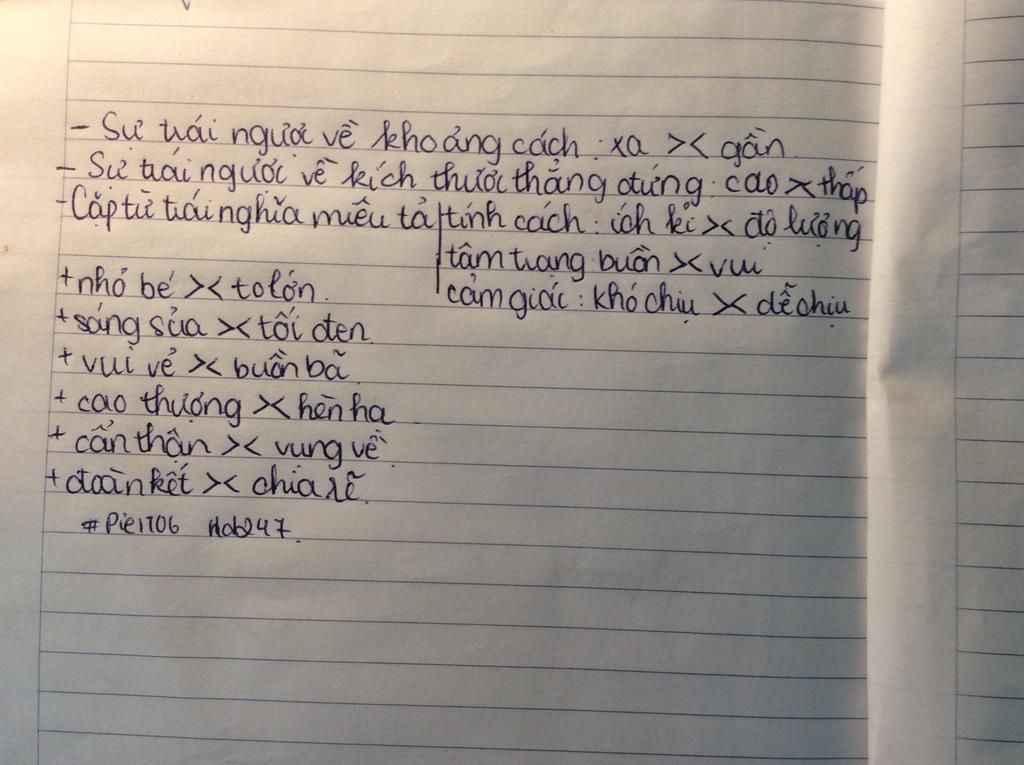 - Sự trái ngược về khoảng cách: xa >< gần.
- Sự trái ngược về kích thước thẳng đứng: cao >< thấp
- Cặp từ trái nghĩa miêu tả tính cách: ích kỉ >< độ lượng
tâm trạng buồn >< vui
+ nhỏ bé >< to lớn.
cảm giác: khó chịu >< dễ chịu
+ sáng sủa >< tối đen
+ vui vẻ >< buồn bã
+ cao thượng >< hèn hạ
+ cẩn thận >< vụng về
+ đoàn kết >< chia rẽ.
#Pie1706